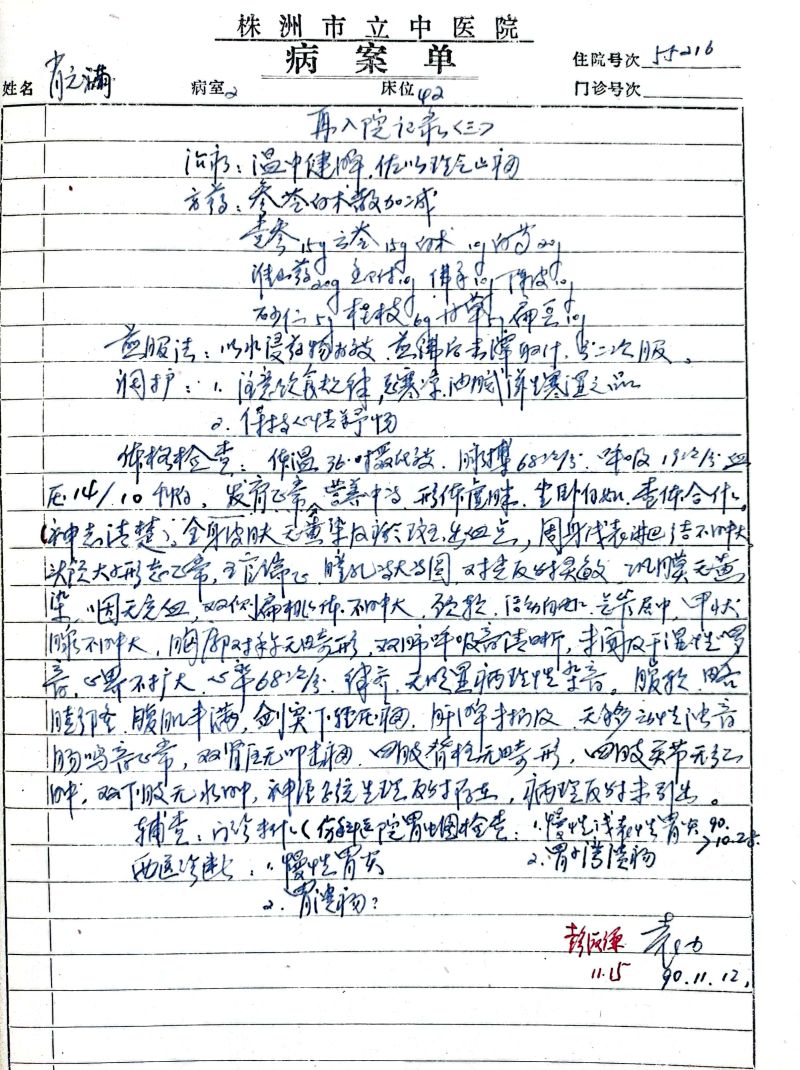 株洲市立中医院
病案单
住院号次 55216
姓名 肖元满 病室 2 床位 42 门诊号次
再入院记录<三>
治则：温中健脾，佐以理气止痛
方药：参苓白术散加减
党参15g 云苓15g 白术10g 白芍20g
淮山药20g 香附10g 佛手10g 陈皮10g
砂仁5g 桂枝6g 甘草5g 扁豆10g
煎服法：以水浸药物 煎沸后去渣取汁，分二次服。
调护：1. 注意饮食规律，忌寒凉、油腻 生寒湿之品
2. 保持心情舒畅
体格检查：体温36.4摄氏度 脉搏68次/分，呼吸19次/分 血
压14/10千帕，发育正常，营养中等，形体虚胖，坐卧自如，查体合作。
(神志清楚)，全身皮肤无黄染及瘀斑、出血点，周身浅表淋巴结不肿大，
头颅大小形态正常，五官端正，瞳孔等大等圆，对光反射灵敏，巩膜无黄
染，咽无充血，双侧扁桃体不肿大，颈软，活动自如，气管居中，甲状
腺不肿大，胸廓对称无畸形，双肺呼吸音清晰，未闻及干湿性啰
音，心界不扩大，心率68次/分，律齐，无明显病理性杂音。腹软，略
膨隆，腹肌丰满，剑突下轻压痛，肝脾未扪及，无移动性浊音
肠鸣音正常，双肾区无叩击痛，四肢脊柱无畸形，四肢关节无红
肿，双下肢无水肿，神经系统生理反射存在，病理反射未引出。
辅查：门诊未作( 医院胃 检查：1.慢性浅表性胃炎 90.10.28.
西医诊断：1. 慢性胃炎 2.胃小弯溃疡
2. 胃溃疡？
11.15 90.11.12.